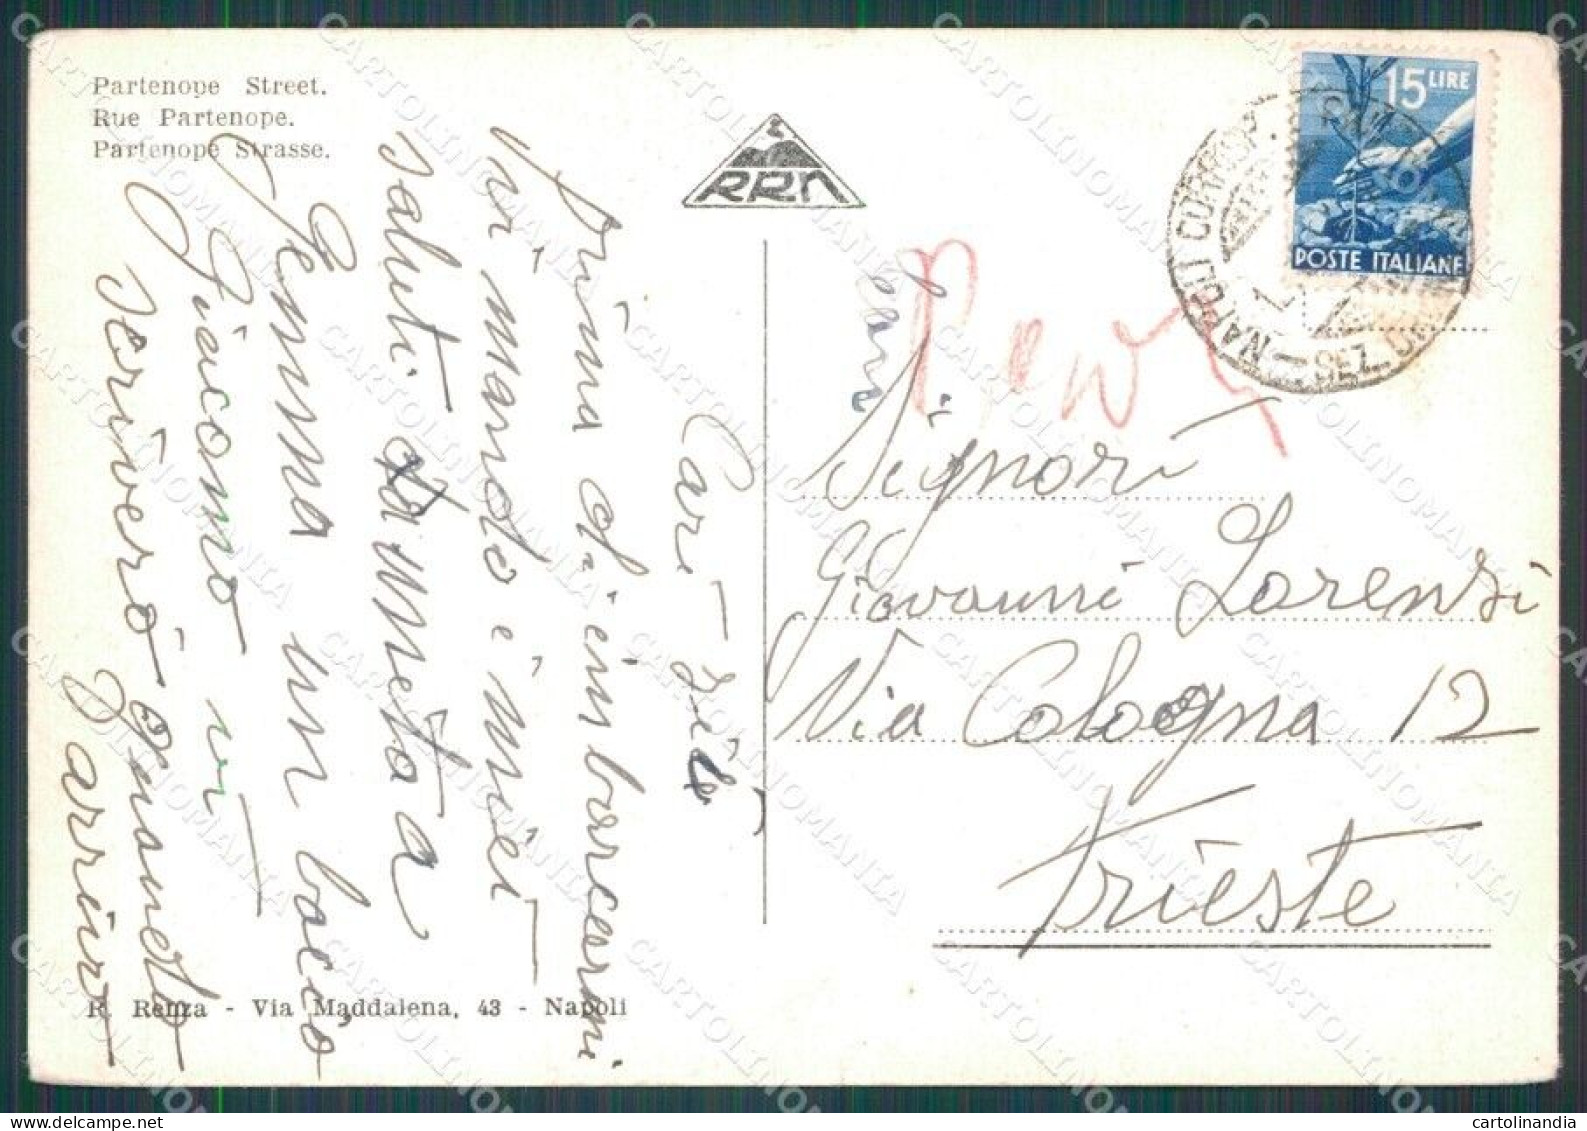 Partenope Street.
Rue Partenope.
Partenope Strasse.
RRN
15 LIRE
POSTE ITALIANE
NAPOLI CORRISP
SEZ.
Cari zii
Prima d'imbarcarmi
vi mando i miei
saluti
Gemma un bacio
Giacomo
Scriverò quando
arrivo
Signori
Giovanni Lorenzi
Via Cologna 12
Trieste
R. Renza - Via Maddalena, 43 - Napoli
CARTOLINOMANIA
cartolinandia